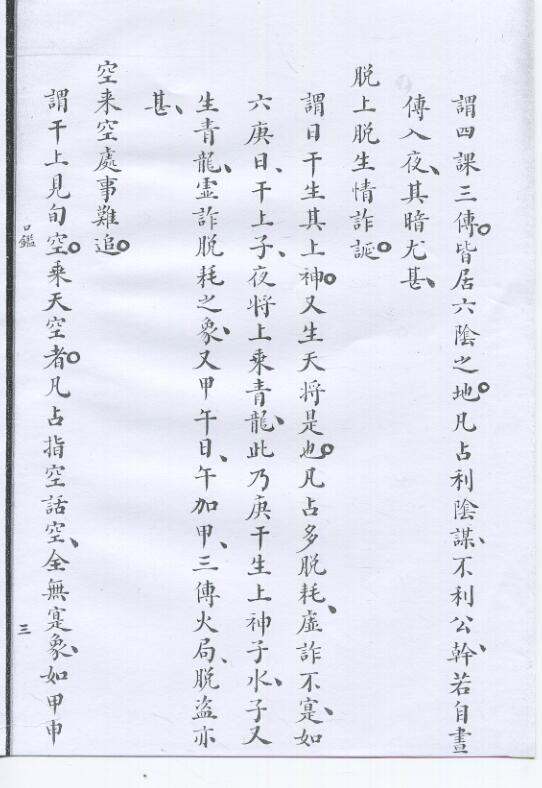 謂四課三傳。皆居六陰之地。凡占利陰謀、不利公幹、若自晝
傳入夜、其暗尤甚、
脱上脱生情詐誕。
謂日干生其上神。又生天将是也。凡占多脱耗、虛詐不寔、如
六庚日、干上子、夜将上乘青龍、此乃庚干生上神子水、子又
生青龍、虛詐脱耗之象、又甲午日、午加甲、三傳火局、脱盗亦
甚、
空来空處事難追。
謂干上見旬空。乘天空者。凡占指空話空、全無寔象、如甲申
口鑑
三